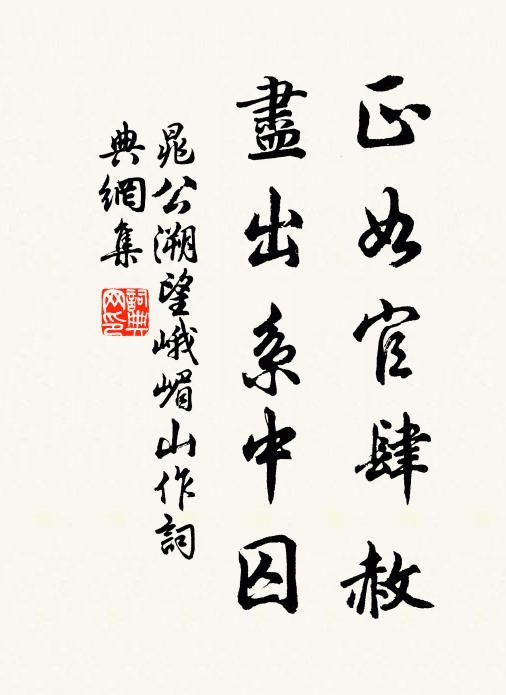 正如官肆赦
盡出系中囚
晁公溯望峨嵋山作詞
典網集
詞典网印